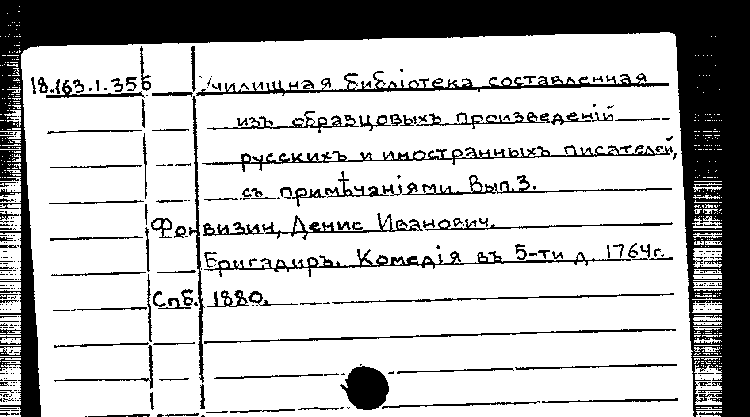 18.163.1.356 Училищная библіотека, составленная
изъ образцовыхъ произведеній
русскихъ и иностранныхъ писателей,
съ примѣчаніями. Вып. 3.
Фонвизин, Денис Иванович.
Бригадиръ. Комедія въ 5-ти д. 1764г.
Спб. 1880.